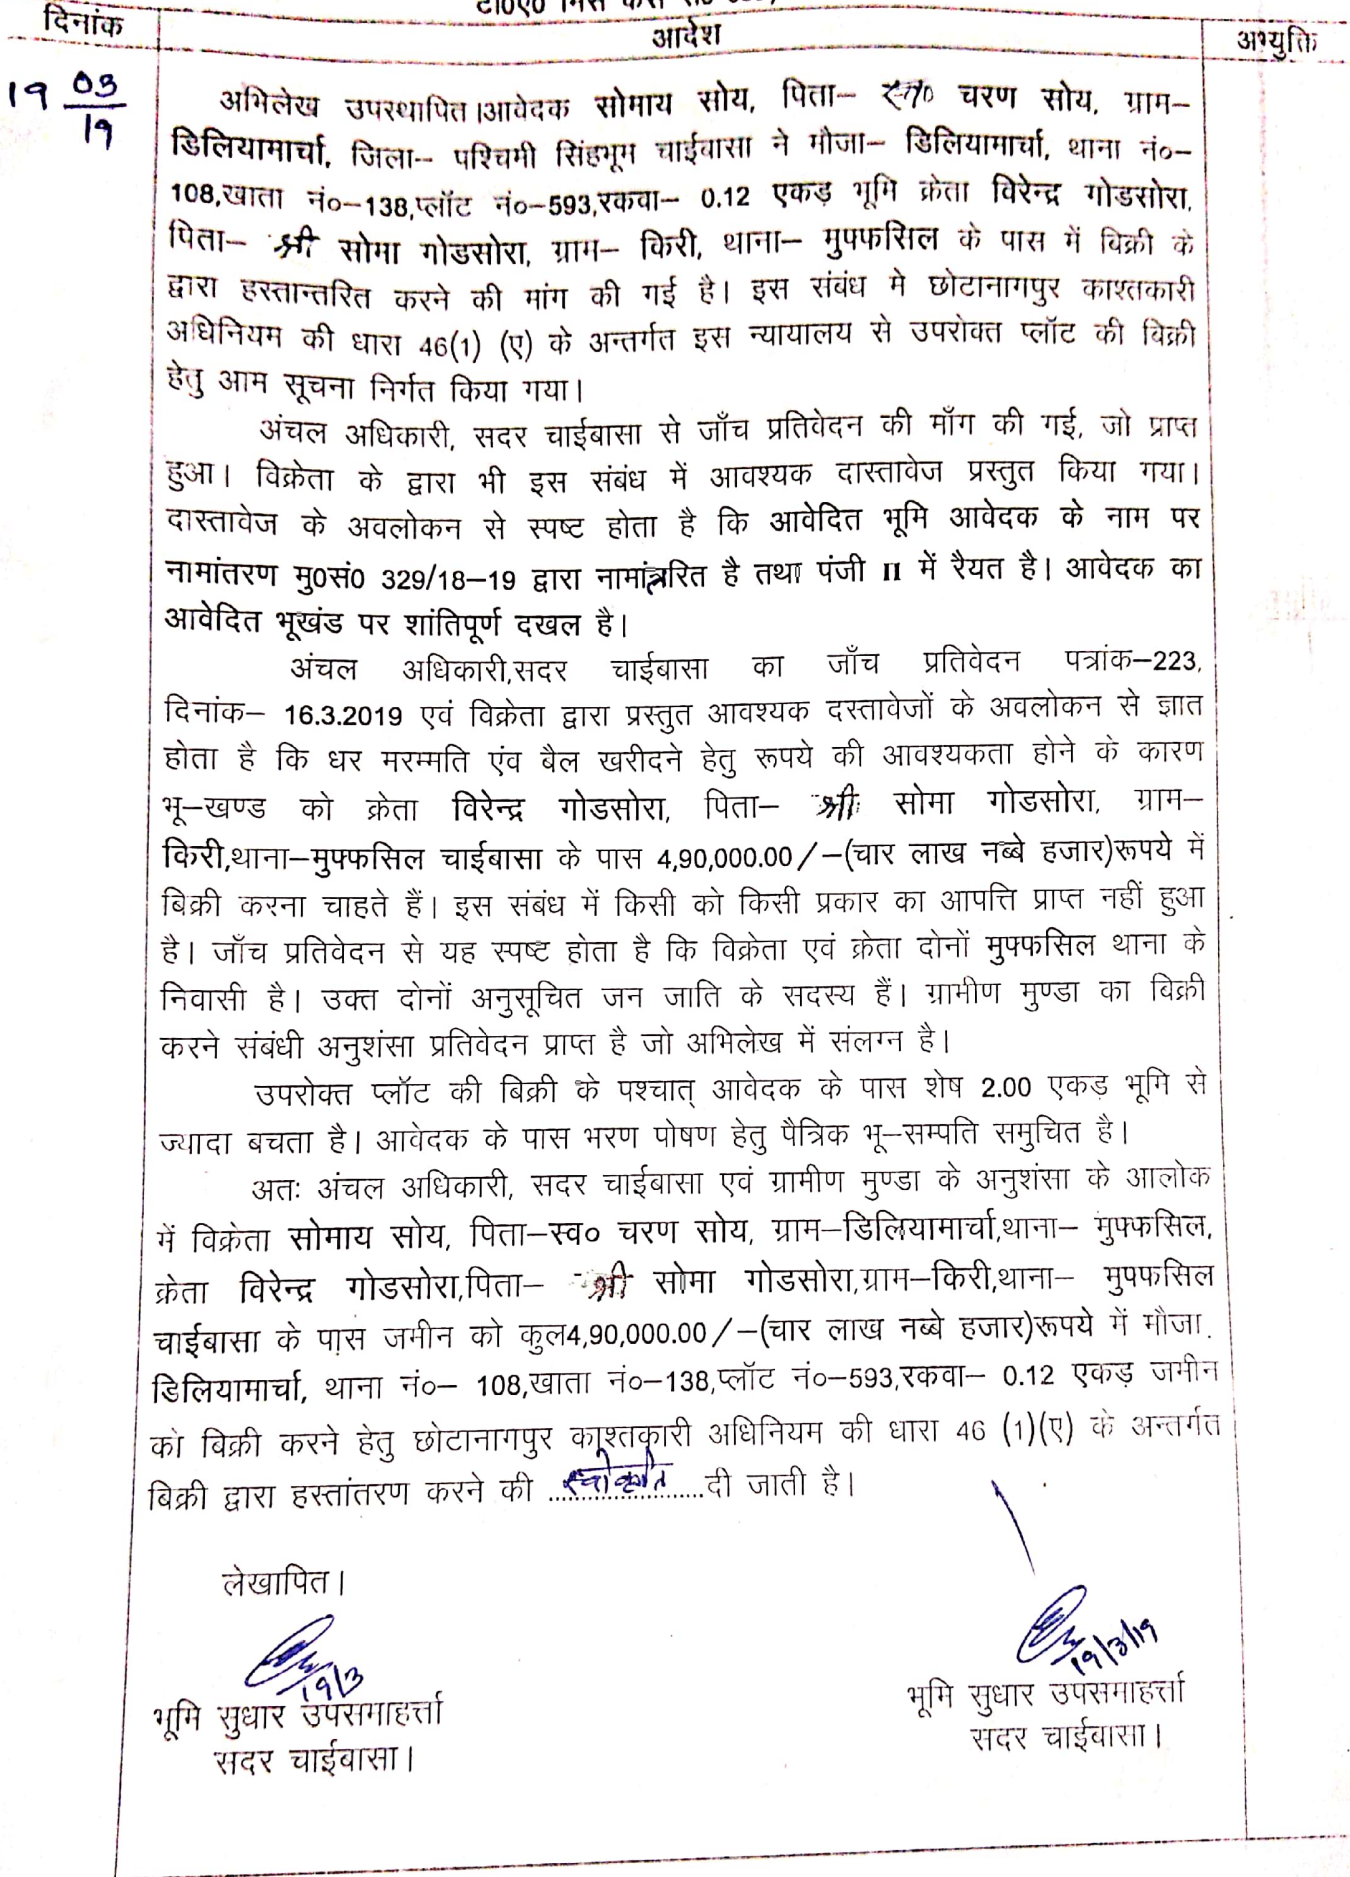 दिनांक
आदेश
अभ्युक्ति
19 03/19
अभिलेख उपस्थापित।आवेदक सोमाय सोय, पिता– स्व० चरण सोय, ग्राम–
डिलियामार्चा, जिला– पश्चिमी सिंहभूम चाईबासा ने मौजा– डिलियामार्चा, थाना नं०–
108,खाता नं०–138,प्लॉट नं०–593,रकवा– 0.12 एकड़ भूमि क्रेता विरेन्द्र गोडसोरा,
पिता– श्री सोमा गोडसोरा, ग्राम– किरी, थाना– मुफ्फसिल के पास में बिक्री के
द्वारा हस्तान्तरित करने की मांग की गई है। इस संबंध मे छोटानागपुर काश्तकारी
अधिनियम की धारा 46(1) (ए) के अन्तर्गत इस न्यायालय से उपरोक्त प्लॉट की बिक्री
हेतु आम सूचना निर्गत किया गया।
अंचल अधिकारी, सदर चाईबासा से जाँच प्रतिवेदन की माँग की गई, जो प्राप्त
हुआ। विक्रेता के द्वारा भी इस संबंध में आवश्यक दास्तावेज प्रस्तुत किया गया।
दास्तावेज के अवलोकन से स्पष्ट होता है कि आवेदित भूमि आवेदक के नाम पर
नामांतरण मु0सं0 329/18–19 द्वारा नामांत्नरित है तथा पंजी II में रैयत है। आवेदक का
आवेदित भूखंड पर शांतिपूर्ण दखल है।
अंचल अधिकारी,सदर चाईबासा का जाँच प्रतिवेदन पत्रांक–223,
दिनांक– 16.3.2019 एवं विक्रेता द्वारा प्रस्तुत आवश्यक दस्तावेजों के अवलोकन से ज्ञात
होता है कि धर मरम्मति एंव बैल खरीदने हेतु रूपये की आवश्यकता होने के कारण
भू–खण्ड को क्रेता विरेन्द्र गोडसोरा, पिता– श्री सोमा गोडसोरा, ग्राम–
किरी,थाना–मुफ्फसिल चाईबासा के पास 4,90,000.00/–(चार लाख नब्बे हजार)रूपये में
बिक्री करना चाहते हैं। इस संबंध में किसी को किसी प्रकार का आपत्ति प्राप्त नहीं हुआ
है। जाँच प्रतिवेदन से यह स्पष्ट होता है कि विक्रेता एवं क्रेता दोनों मुफ्फसिल थाना के
निवासी है। उक्त दोनों अनुसूचित जन जाति के सदस्य हैं। ग्रामीण मुण्डा का बिक्री
करने संबंधी अनुशंसा प्रतिवेदन प्राप्त है जो अभिलेख में संलग्न है।
उपरोक्त प्लॉट की बिक्री के पश्चात् आवेदक के पास शेष 2.00 एकड़ भूमि से
ज्यादा बचता है। आवेदक के पास भरण पोषण हेतु पैत्रिक भू–सम्पति समुचित है।
अतः अंचल अधिकारी, सदर चाईबासा एवं ग्रामीण मुण्डा के अनुशंसा के आलोक
में विक्रेता सोमाय सोय, पिता–स्व० चरण सोय, ग्राम–डिलियामार्चा,थाना– मुफ्फसिल,
क्रेता विरेन्द्र गोडसोरा,पिता– श्री सोमा गोडसोरा,ग्राम–किरी,थाना– मुफ्फसिल
चाईबासा के पास जमीन को कुल4,90,000.00/–(चार लाख नब्बे हजार)रूपये में मौजा
डिलियामार्चा, थाना नं०– 108,खाता नं०–138,प्लॉट नं०–593,रकवा– 0.12 एकड़ जमीन
को बिक्री करने हेतु छोटानागपुर काश्तकारी अधिनियम की धारा 46 (1)(ए) के अन्तर्गत
बिक्री द्वारा हस्तांतरण करने की ...स्वीकृति...दी जाती है।
लेखापित।
19/3
19/3/19
भूमि सुधार उपसमाहर्त्ता
सदर चाईबासा।
भूमि सुधार उपसमाहर्त्ता
सदर चाईबासा।